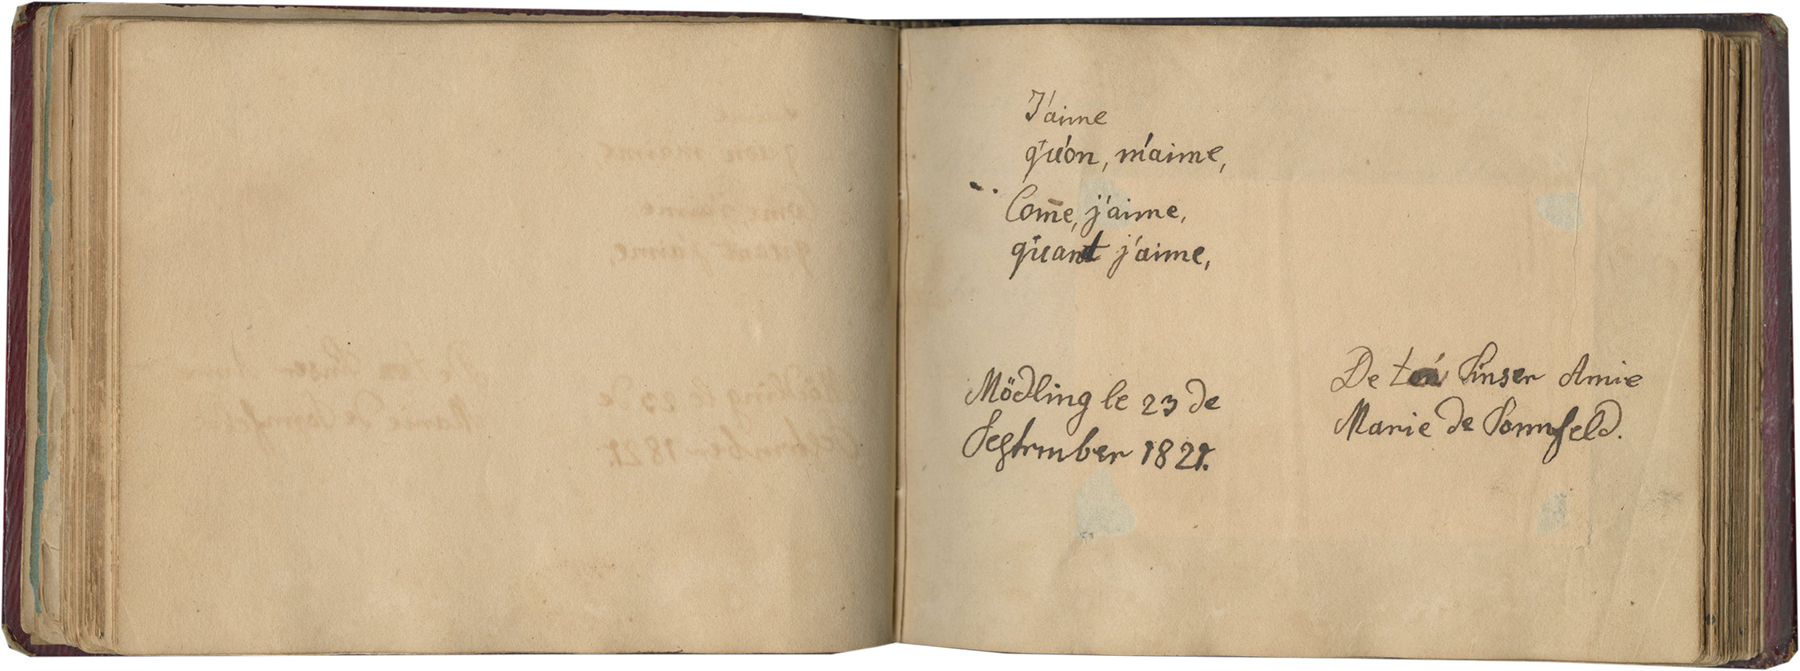 J'aime
qu'on, m'aime,
Com̄e, j'aime,
quant j'aime,
Mödling le 23 de
September 1821.
De ton Sinser Amie
Marie de Sonnfeld.